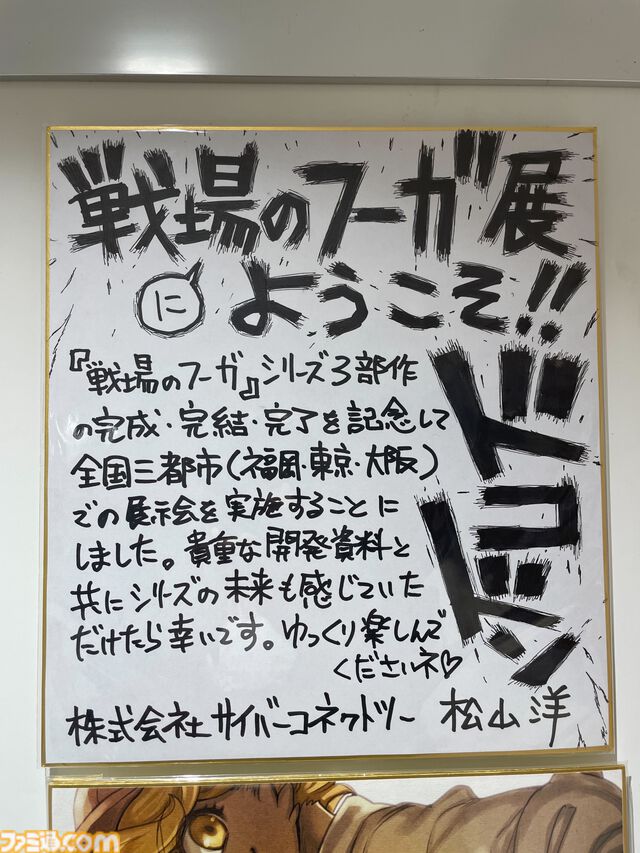 戦場のフーガ展
に ようこそ!!
『戦場のフーガ』シリーズ3部作
の完成・完結・完了を記念して
全国三都市(福岡・東京・大阪)
での展示会を実施することに
しました。貴重な開発資料と
共にシリーズの未来も感じていた
だけたら幸いです。ゆっくり楽しんで
くださいネ♡
株式会社サイバーコネクトツー 松山洋
ドドンッ
ファミ通.com